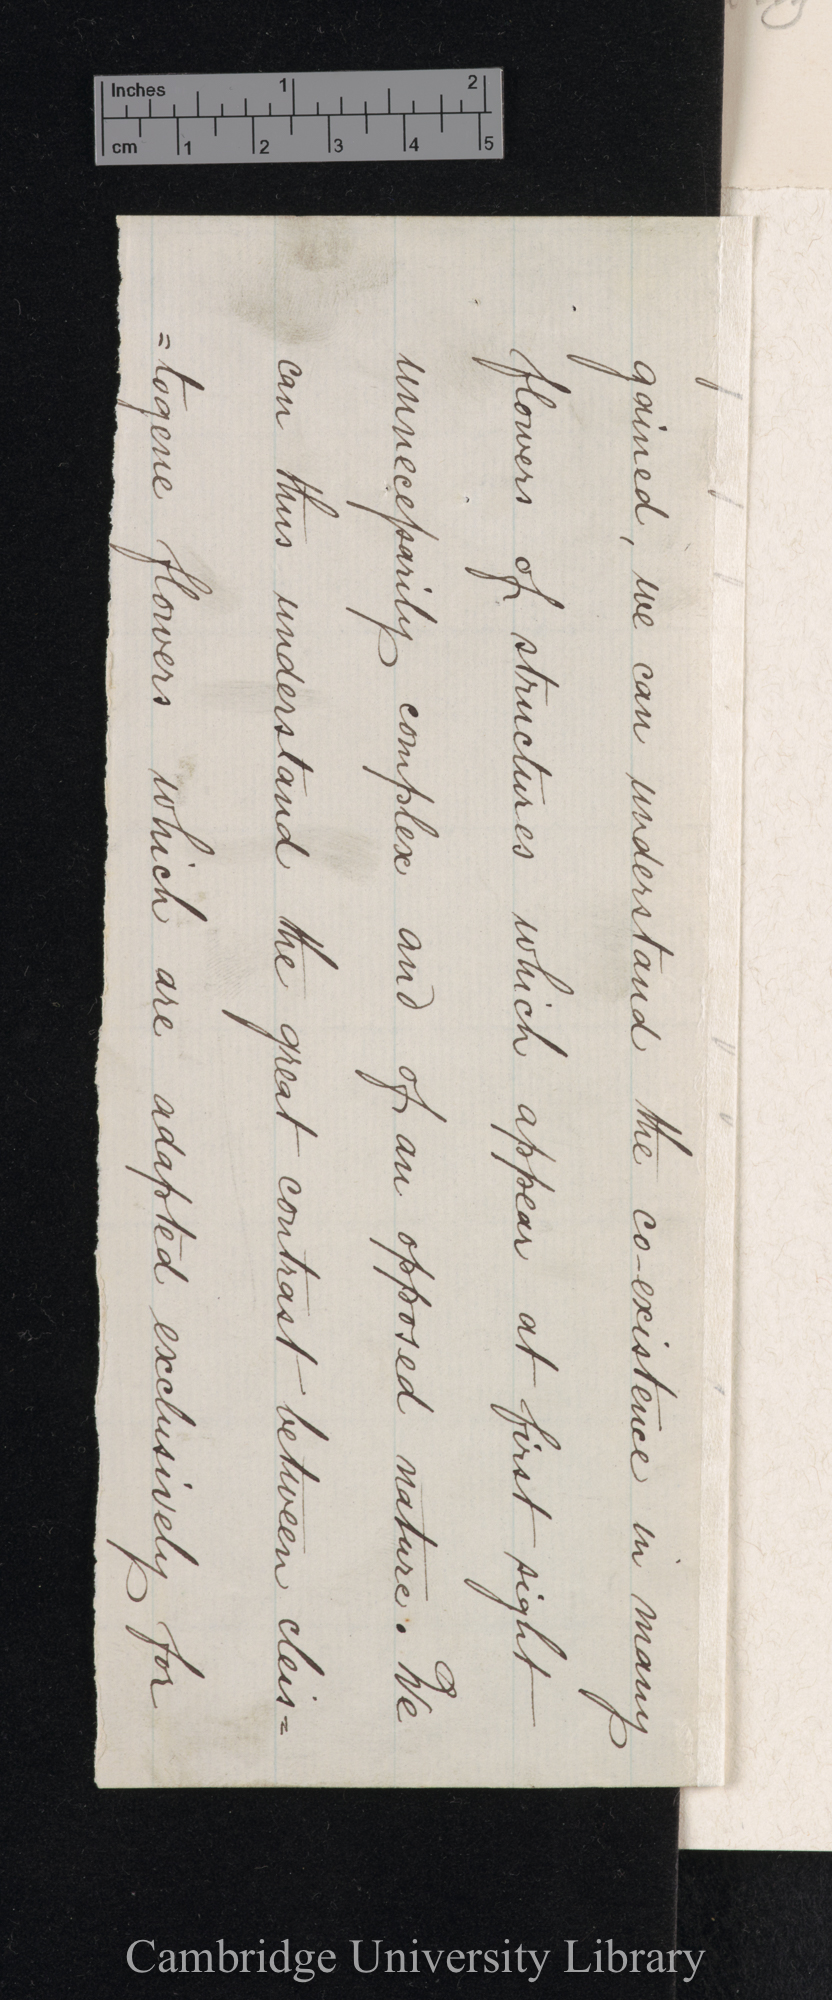 Inches 1 2
cm 1 2 3 4 5
gained, we can understand the co-existence in many
flowers of structures which appear at first sight
unnecessarily complex and of an opposed nature. We
can thus understand the great contrast between cleis=
=togene flowers which are adapted exclusively for
Cambridge University Library